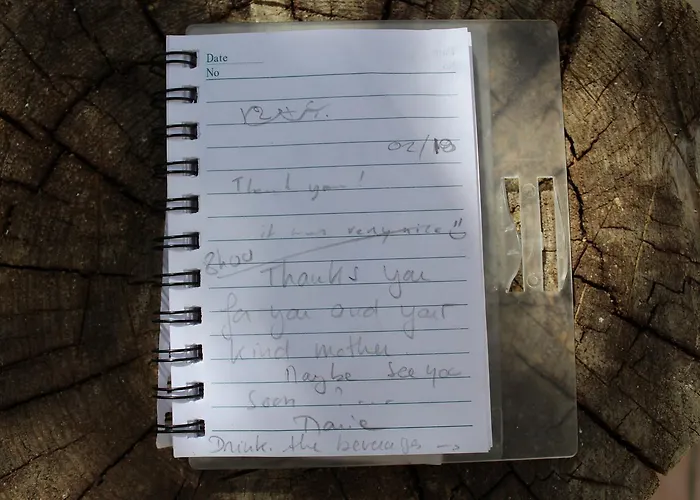 Date
No
02/18
Thank you!
it was very nice
8h00
Thanks you
for you and your
kind mother
Maybe see you
soon
Drink. the beverages →